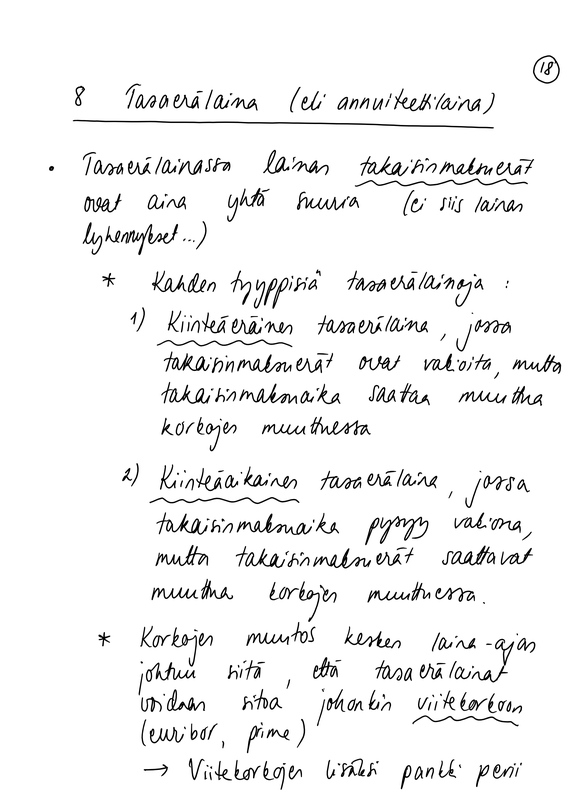 18
8 Tasaerälaina (eli annuiteettilaina)
• Tasaerälainassa lainan takaisinmaksuerät
ovat aina yhtä suuria (ei siis lainan
lyhennykset...)
* Kahden tyyppisiä tasaerälainoja :
1) Kiinteäeräinen tasaerälaina, jossa
takaisinmaksuerät ovat vakioita, mutta
takaisinmaksuaika saattaa muuttua
korkojen muuttuessa
2) Kiinteäaikainen tasaerälaina, jossa
takaisinmaksuaika pysyy vakiona,
mutta takaisinmaksuerät saattavat
muuttua korkojen muuttuessa.
* Korkojen muutos kesken laina-ajan
johtuu siitä, että tasaerälainat
voidaan sitoa johonkin viitekorkoon
(euribor, prime)
→ Viitekorkojen lisäksi pankki perii